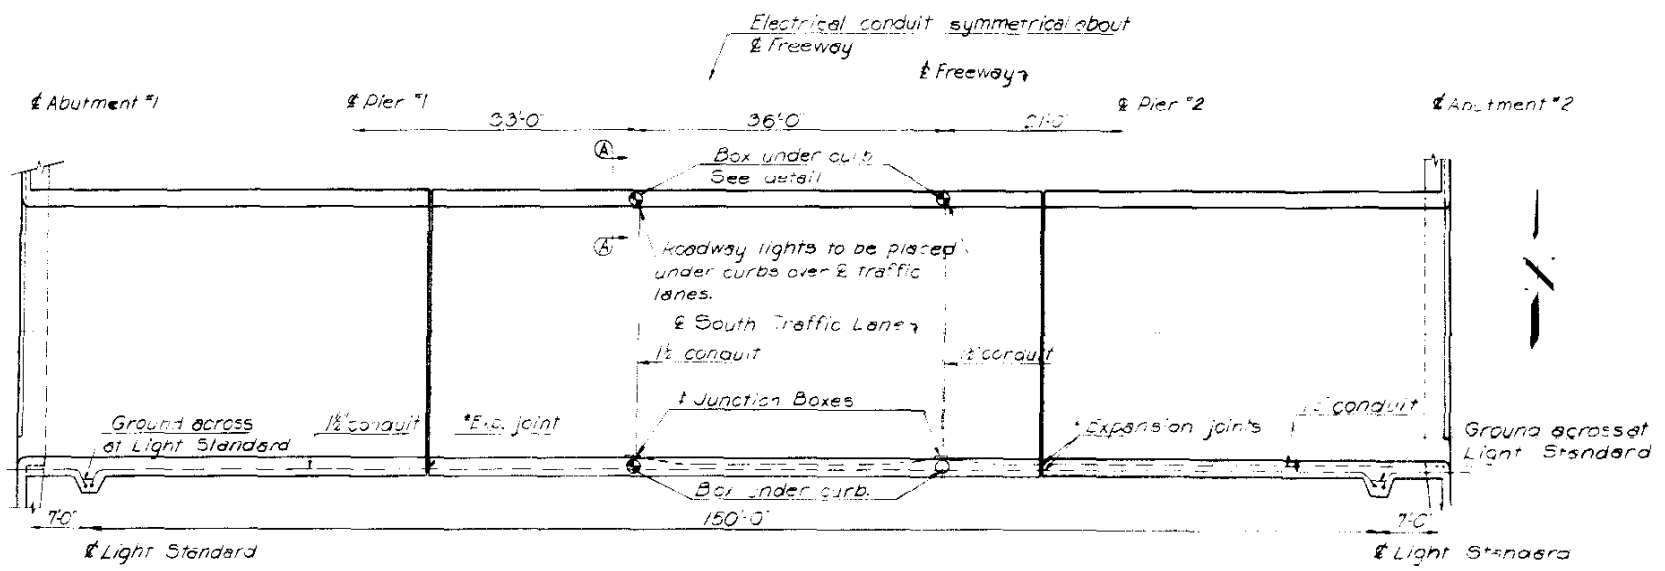 Electrical conduit symmetrical about
℄ Freeway
℄ Freeway
℄ Abutment #1
℄ Pier #1
℄ Pier #2
℄ Abutment #2
33'-0"
36'-0"
21'-0"
A
Box under curb
See detail
A
Roadway lights to be placed
under curbs over ℄ traffic
lanes.
℄ South Traffic Lane
1½" conduit
1½" conduit
‡ Junction Boxes
Ground across
at Light Standard
1½" conduit
*Exp. joint
*Expansion joints
conduit
Ground across at
Light Standard
Box under curb.
7'-0"
150'-0"
7'-0"
℄ Light Standard
℄ Light Standard